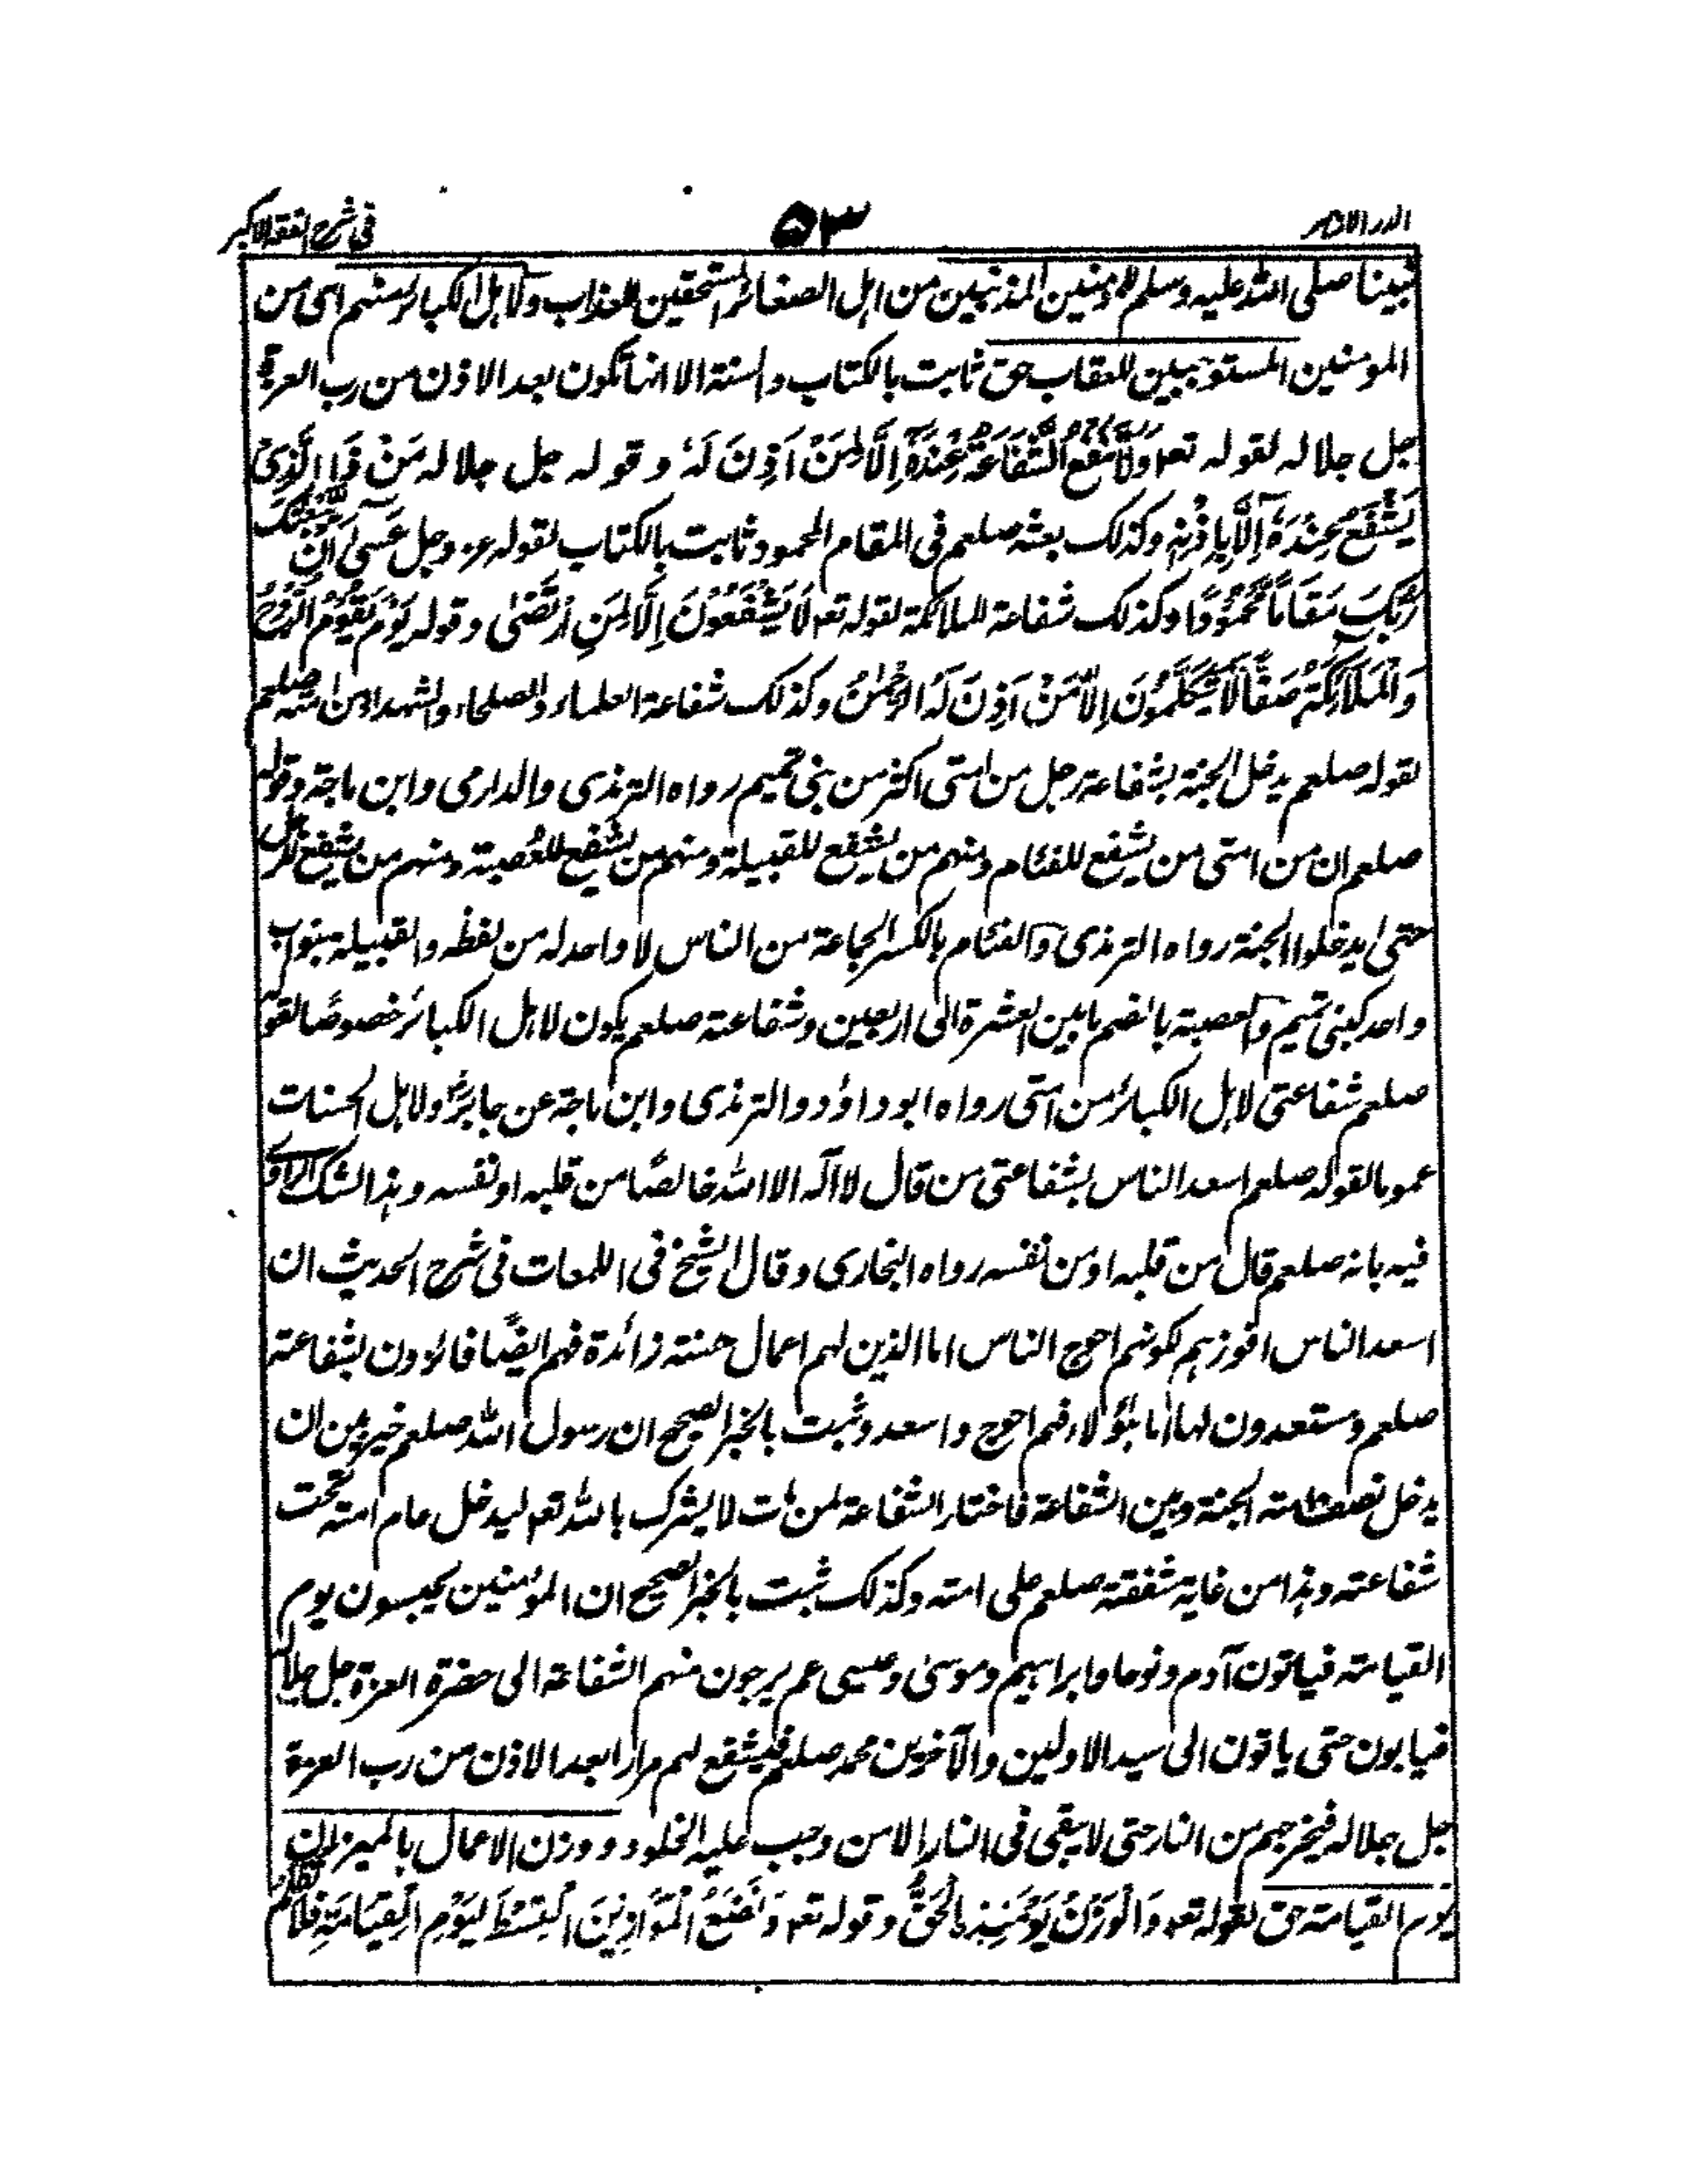 الدر الازهر ٥٣ فى شرح الفقه الاكبر
نبينا صلى الله عليه وسلم للمومنين المذنبين من اهل الصغائر المستحقين للعذاب ولاهل الكبائر منهم اى من
المومنين المستوجبين للعقاب حق ثابت بالكتاب والسنة الا انها تكون بعد الاذن من رب العزة
جل جلاله لقوله تعه وَلَا تَنْفَعُ الشَّفَاعَةُ عِنْدَهٗ اِلَّا لِمَنْ اَذِنَ لَهٗ وقوله جل جلاله مَنْ ذَا الَّذِىْ
يَشْفَعُ عِنْدَهٗ اِلَّا بِاِذْنِهٖ وكذلك بعثه صلعم فى المقام المحمود ثابت بالكتاب لقوله عز وجل عَسىٰ اَنْ يَّبْعَثَكَ
رَبُّكَ مَقَامًا مَّحْمُوْدًا وكذلك شفاعة الملائكة لقوله تعه لَا يَشْفَعُوْنَ اِلَّا لِمَنِ ارْتَضٰى وقوله يَوْمَ يَقُوْمُ الرُّوْحُ
وَالْمَلَائِكَةُ صَفًّا لَّا يَتَكَلَّمُوْنَ اِلَّا مَنْ اَذِنَ لَهُ الرَّحْمٰنُ وكذلك شفاعة العلماء والصلحاء والشهداء من امته صلعم
لقوله صلعم يدخل الجنة بشفاعة رجل من امتى اكثر من بنى تميم رواه الترمذى والدارمى وابن ماجة وقوله
صلعم ان من امتى من يشفع للفئام ومنهم من يشفع للقبيلة ومنهم من يشفع للعُصبة ومنهم من يشفع للرجل
حتى يدخلوا الجنة رواه الترمذى والفئام بالكسر الجماعة من الناس لا واحد له من لفظه والقبيلة بنو اب
واحد كبنى تميم والعصبة بالضم ما بين العشرة الى اربعين وشفاعته صلعم يكون لاهل الكبائر خصوصًا لقوله
صلعم شفاعتى لاهل الكبائر من امتى رواه ابو داؤد والترمذى وابن ماجة عن جابرؓ ولاهل الحسنات
عموما لقوله صلعم اسعد الناس بشفاعتى من قال لا اله الا الله خالصًا من قلبه او نفسه وهذا الشك الراوى
فيه بانه صلعم قال من قلبه او من نفسه رواه البخارى وقال الشيخ فى اللمعات فى شرح الحديث ان
اسعد الناس افوزهم لكونهم احوج الناس اما الذين لهم اعمال حسنة زائدة فهم ايضًا فائزون بشفاعة
صلعم ومستعدون لها اما هؤلاء فهم احوج واسعد وثبت بالخبر الصحيح ان رسول الله صلعم خير بين ان
يدخل نصف امته الجنة وبين الشفاعة فاختار الشفاعة لمن مات لا يشرك بالله تعه ليدخل عام امته تحت
شفاعته وهذا من غاية شفقته صلعم على امته وكذلك ثبت بالخبر الصحيح ان المؤمنين يحبسون يوم
القيامة فياتون آدم ونوحا وابراهيم وموسىٰ وعيسى عم يرجون منهم الشفاعة الى حضرة العزة جل جلاله
فيابون حتى ياتون الى سيد الاولين والآخرين محمد صلعم فيشفع لهم مرارا بعد الاذن من رب العزة
جل جلاله فيخرجهم من النار حتى لا يبقى فى النار الا من وجب عليه الخلود و وزن الاعمال بالميزان
يوم القيامة حق لقوله تعه وَالْوَزْنُ يَوْمَئِذِ ِالْحَقُّ وقوله تعه وَنَضَعُ الْمَوَازِيْنَ الْقِسْطَ لِيَوْمِ الْقِيَامَةِ فَلَا تُظْلَمُ